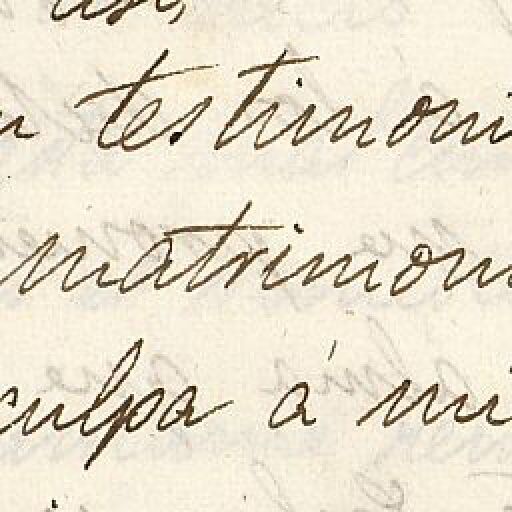 testimoni
matrimoni
culpa á mi